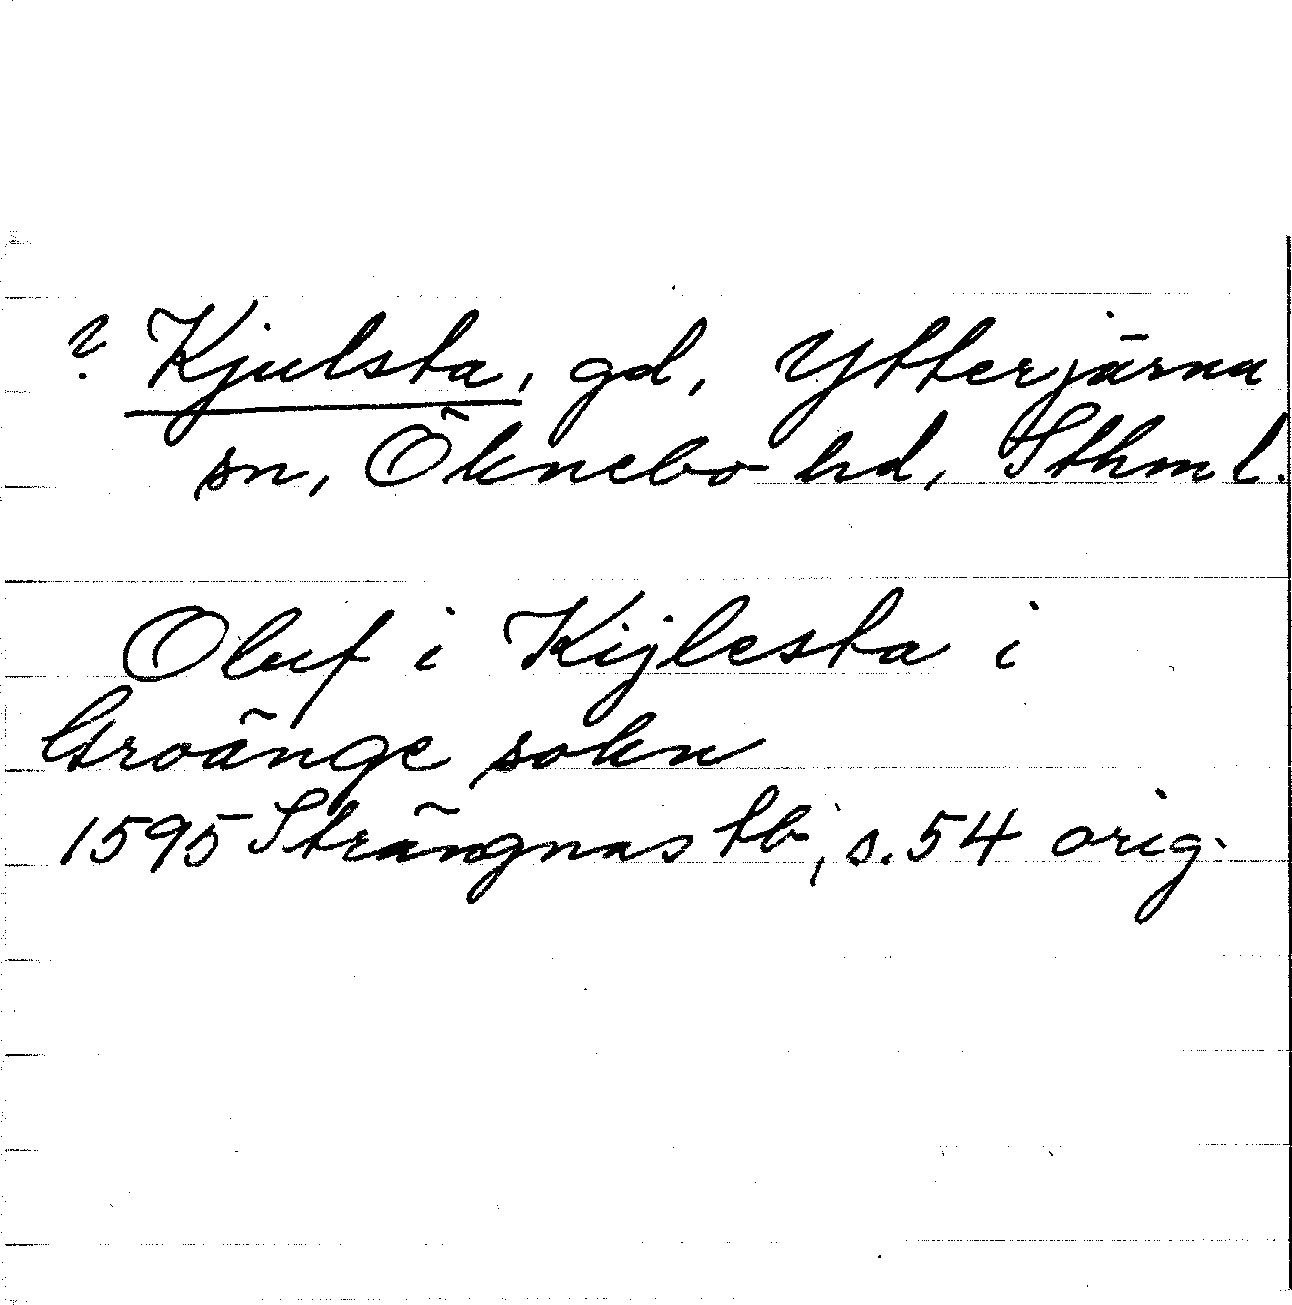 ? Kjulsta, gd, Ytterjärna
sn, Öknebo hd, Sthm l.
Oluf i Kijlesta i
Groänge sokn
1595 Strängnas tb, s. 54 orig.